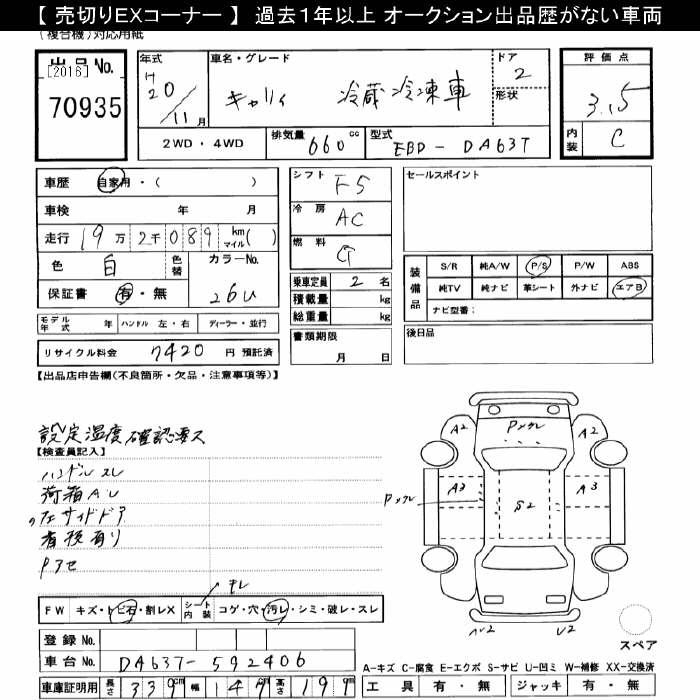 【 売切りEXコーナー 】 過去1年以上 オークション出品歴がない車両
(複合機)対応用紙
出品 No.
[2016]
70935
年式
H20/11月
車名・グレード
キャリィ 冷蔵冷凍車
ドア
2
形状
評価点
3.5
内装
C
2WD ・ 4WD
排気量
660cc
型式
EBD-DA63T
車歴 自家用・( )
車検 年 月
走行 19万2千089 km マイル( )
色 白 色替
カラーNo.
26U
保証書 有・無
モデル年式 年 ハンドル 左・右 ディーラー・並行
リサイクル料金 7420 円 預託済
シフト
F5
冷房
AC
燃料
G
乗車定員 2 名
積載量 kg
総重量 kg
書類期限
月 日
セールスポイント
装備品
S/R 純A/W P/S P/W ABS
純TV 純ナビ 革シート 外ナビ エアB
ナビ型番:
後日品
【出品店申告欄(不良箇所・欠品・注意事項等)】
設定温度確認要ス
【検査員記入】
ハンドルスレ
荷箱AU
左サイドドア
看板有り
Pアセ
キレ
FW キズ・トビ石・割レX シート内装 コゲ・穴・汚レ・シミ・破レ・スレ
登録 No.
車台 No. DA63T-592406
車庫証明用 長さ 339cm 幅 147cm 高さ 199
A2
Pメクレ
A2
A3
Pメクレ
S2
A3
AU2
U2
スペア
A-キズ C-腐食 E-エクボ S-サビ U-凹ミ W-補修 XX-交換済
工具 有・無 ジャッキ 有・無